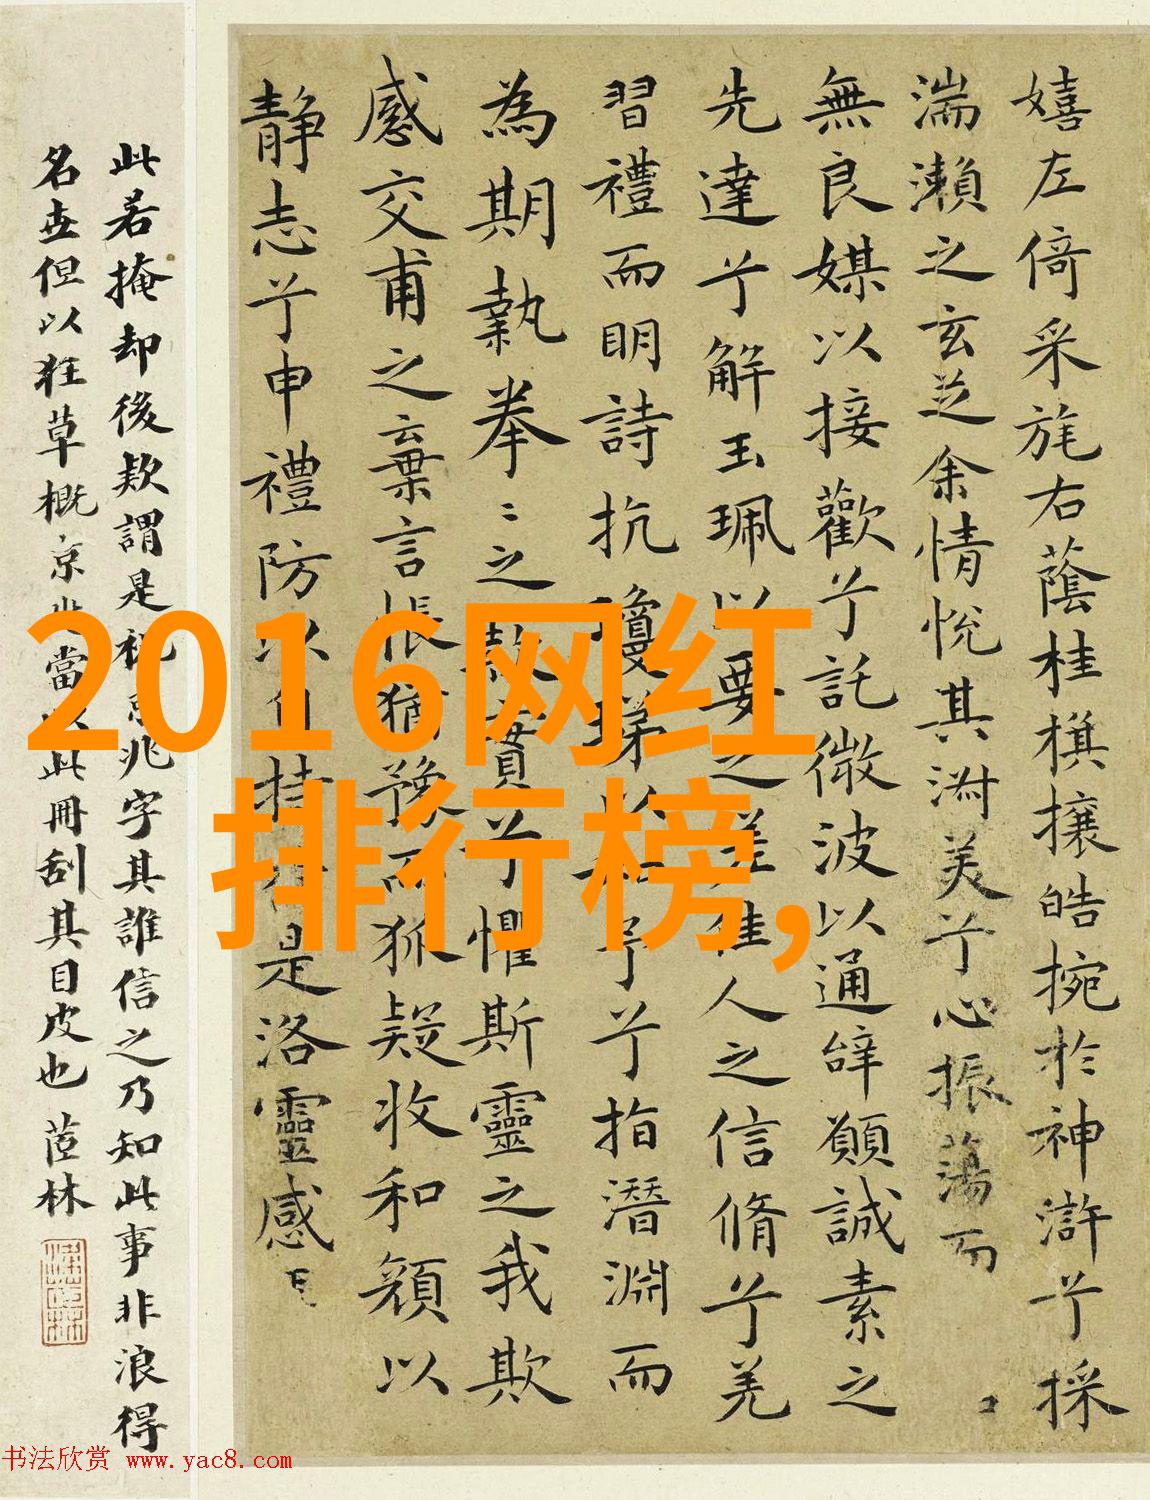 嬉左倚采旄右蔭桂旗攘皓捥於神滸兮採
湍瀨之玄芝余情悅其淑美兮心振蕩而
無良媒以接歡兮託微波以通辭願誠素之
先達兮解玉珮以要之嗟佳人之信脩兮羌
習禮而明詩抗瓊珶以和予兮指潛淵而
為期執拳〻之款實兮懼斯靈之我欺
感交甫之棄言悵猶豫而狐疑收和顏以
靜志兮申禮防以自持是洛靈感
此若掩却後欵謂是祝京兆字其誰信之乃知此事非浪得
名世但以狂草概京兆當以此冊刮其目皮也 茝林
2016网红
排行榜,
书法欣赏 www.yac8.com